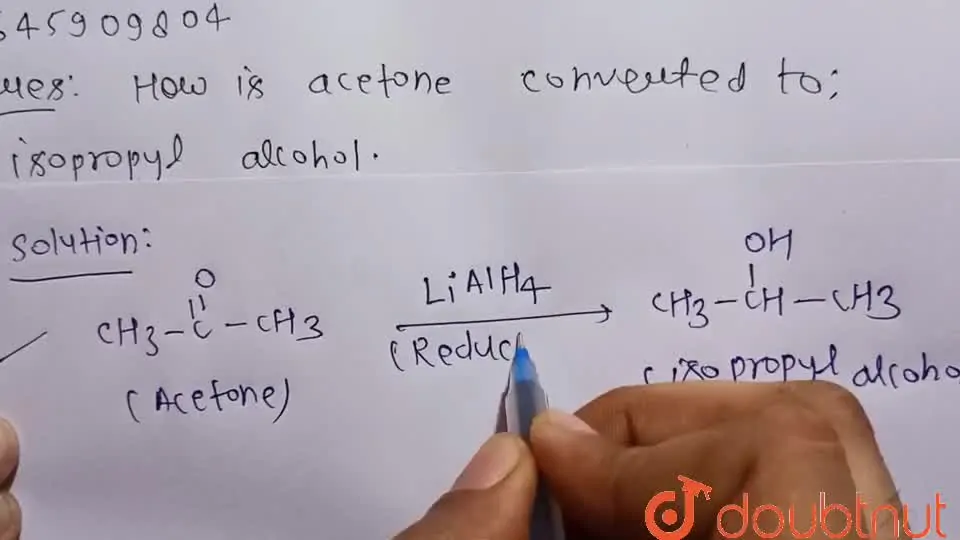 45909804
ues: How is acetone converted to;
isopropyl alcohol.
Solution:
O
||
CH3-C-CH3
(Acetone)
LiAlH4
(Reduc
OH
|
CH3-CH-CH3
(isopropyl alcoho
doubtnut